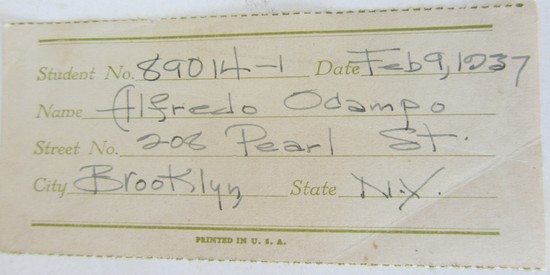 Student No. 89014-1 Date Feb 9, 1937
Name Alfredo Odampo
Street No. 208 Pearl St.
City Brooklyn, State N.Y.
PRINTED IN U. S. A.